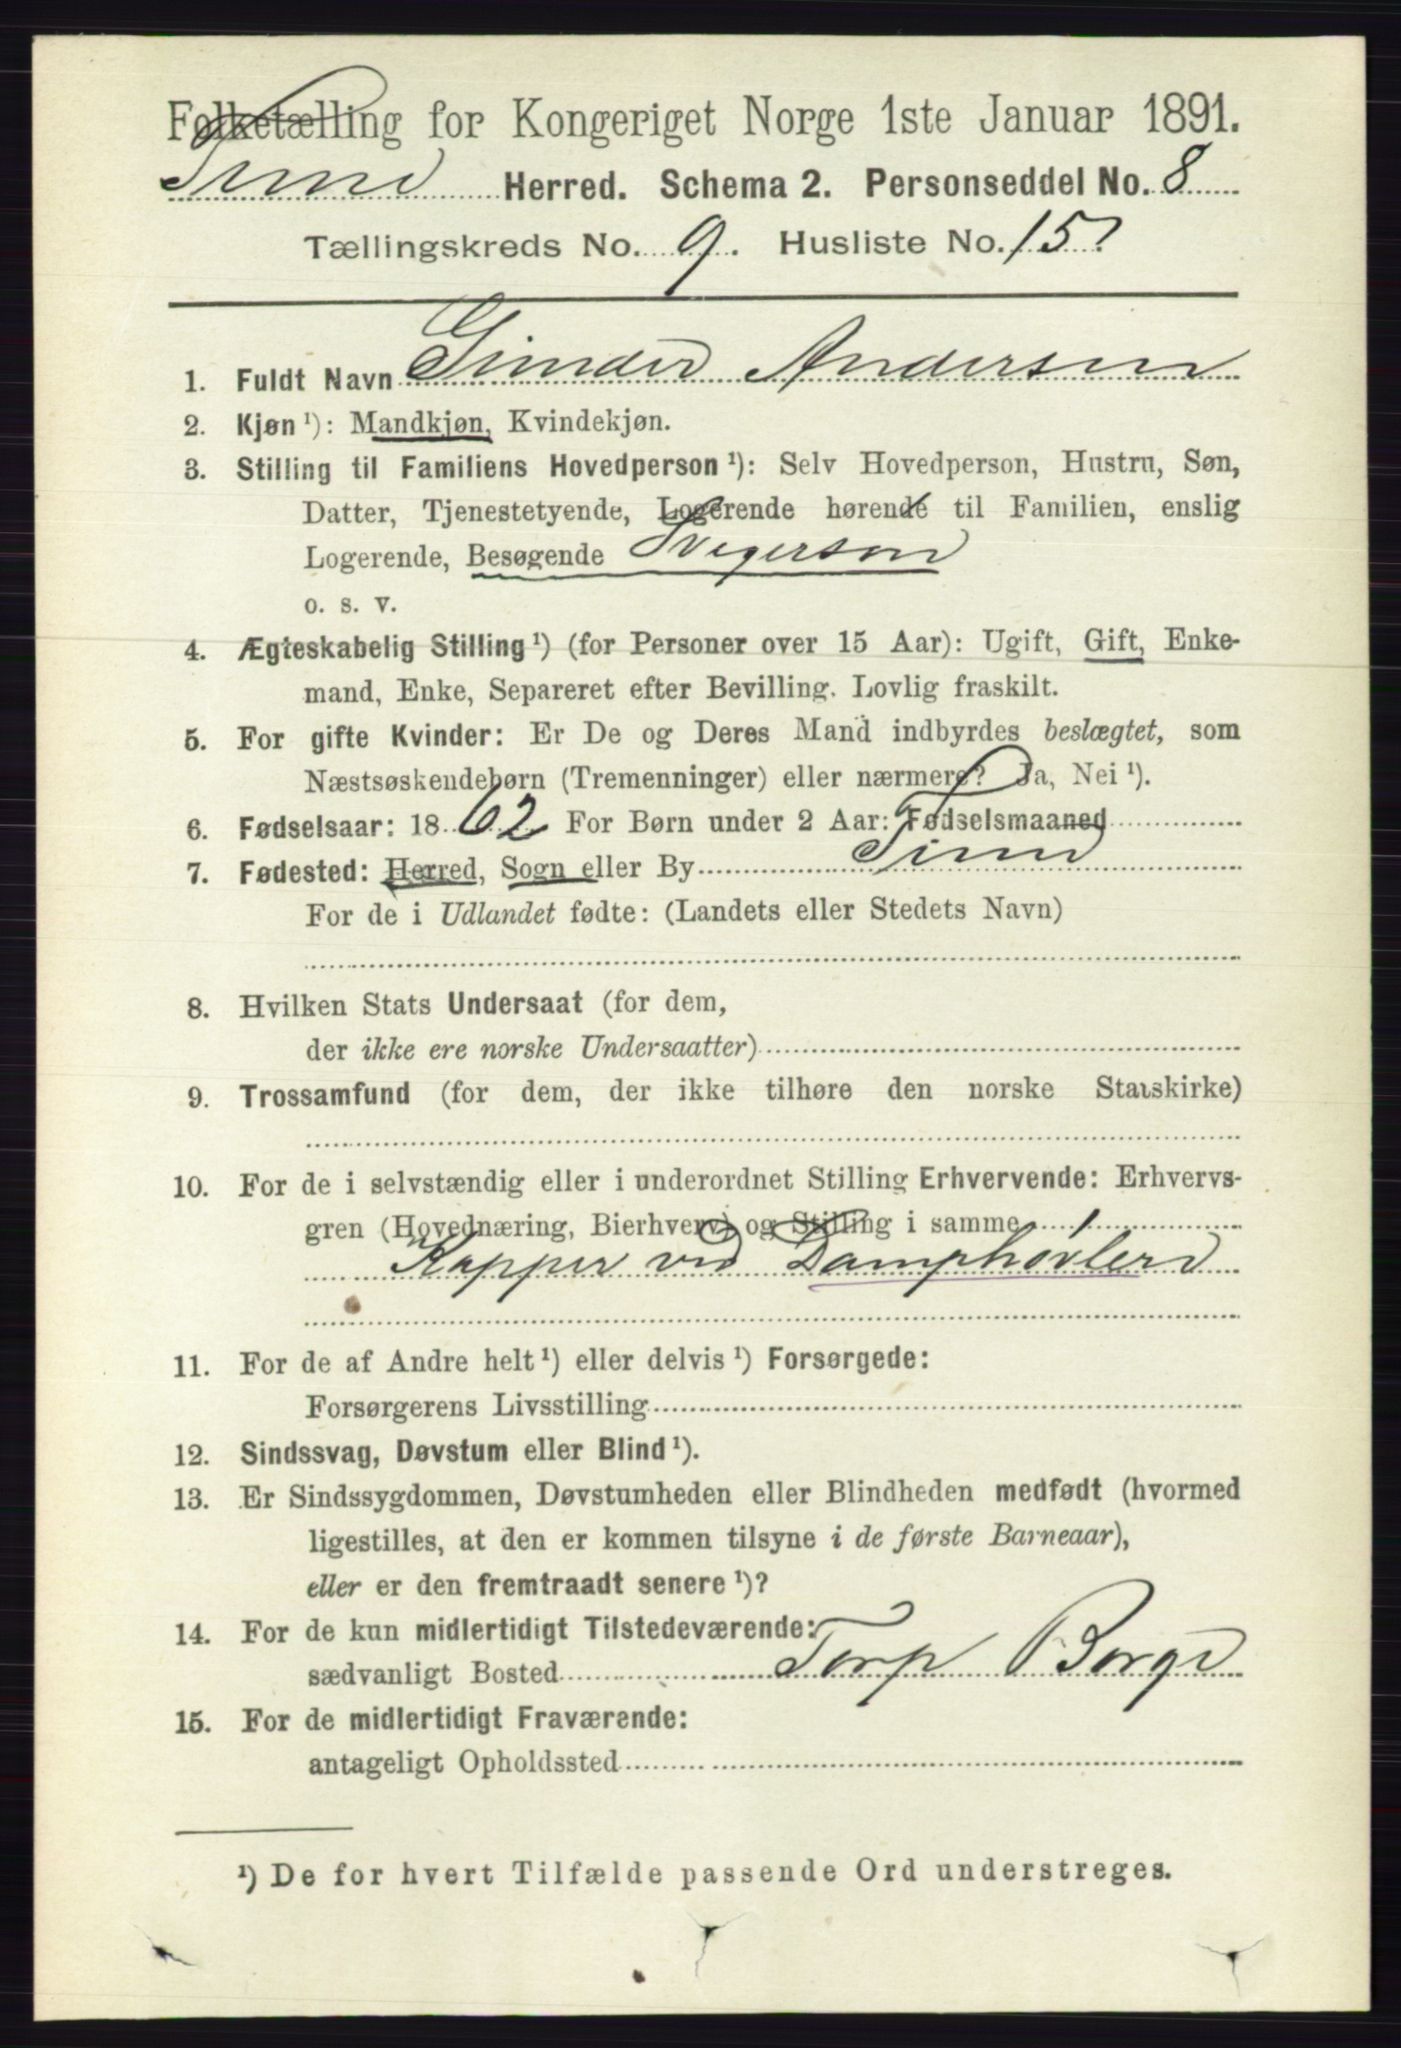 Folketælling for Kongeriget Norge 1ste Januar 1891.
Tune Herred. Schema 2. Personseddel No. 8
Tællingskreds No. 9. Husliste No. 157
1. Fuldt Navn Gunder Andersen
2. Kjøn ¹): Mandkjøn, Kvindekjøn.
3. Stilling til Familiens Hovedperson ¹): Selv Hovedperson, Hustru, Søn,
Datter, Tjenestetyende, Logerende hørende til Familien, enslig
Logerende, Besøgende Svigersøn
o. s. v.
4. Ægteskabelig Stilling ¹) (for Personer over 15 Aar): Ugift, Gift, Enke-
mand, Enke, Separeret efter Bevilling. Lovlig fraskilt.
5. For gifte Kvinder: Er De og Deres Mand indbyrdes beslægtet, som
Næstsøskendebørn (Tremenninger) eller nærmere? Ja, Nei ¹).
6. Fødselsaar: 1862 For Børn under 2 Aar: Fødselsmaaned
7. Fødested: Herred, Sogn eller By Tune
For de i Udlandet fødte: (Landets eller Stedets Navn)
8. Hvilken Stats Undersaat (for dem,
der ikke ere norske Undersaatter)
9. Trossamfund (for dem, der ikke tilhøre den norske Statskirke)
10. For de i selvstændig eller i underordnet Stilling Erhvervende: Erhvervs-
gren (Hovednæring, Bierhverv) og Stilling i samme
Kapper ved Damphøvleri
11. For de af Andre helt ¹) eller delvis ¹) Forsørgede:
Forsørgerens Livsstilling
12. Sindssvag, Døvstum eller Blind ¹).
13. Er Sindssygdommen, Døvstumheden eller Blindheden medfødt (hvormed
ligestilles, at den er kommen tilsyne i de første Barneaar),
eller er den fremtraadt senere ¹)?
14. For de kun midlertidigt Tilstedeværende:
sædvanligt Bosted Torp Borge
15. For de midlertidigt Fraværende:
antageligt Opholdssted
¹) De for hvert Tilfælde passende Ord understreges.